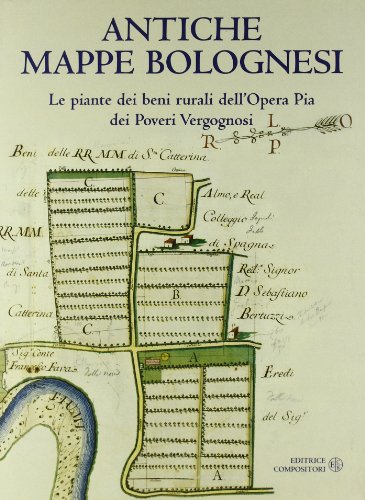 ANTICHE
MAPPE BOLOGNESI
Le piante dei beni rurali dell'Opera Pia
dei Poveri Vergognosi
L
R O
P
Beni delle RR MM di S.ta Catterina
delle
C
C
Almo, e Real
Colleggio
di Spagna
RR MM
di Santa
Catterina
C
B
Red.mo Signor
D. Sebastiano
Bertuzzi
Sig. Conte
Fava
A
Eredi
del Sig.r
FIUME
A
EDITRICE
COMPOSITORI